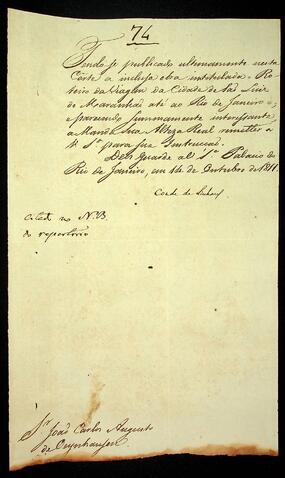 74
Tendo-se publicado ultimamente nesta
Corte a inclusa obra intitulada = Ro-
teiro da Viagem da Cidade de São Luiz
do Maranhão até ao Rio de Janeiro =,
e parecendo summamente interessante,
a Manda Sua Alteza Real remetter a
V. S.ª para sua Instrucção.
Deos guarde a V. S.ª Palacio do
Rio de Janeiro, em 14 de Outubro de 1811.
Conde de Linhares
Citado no N. B.
do repertorio
S.r João Carlos Augusto
de Oeynhausen